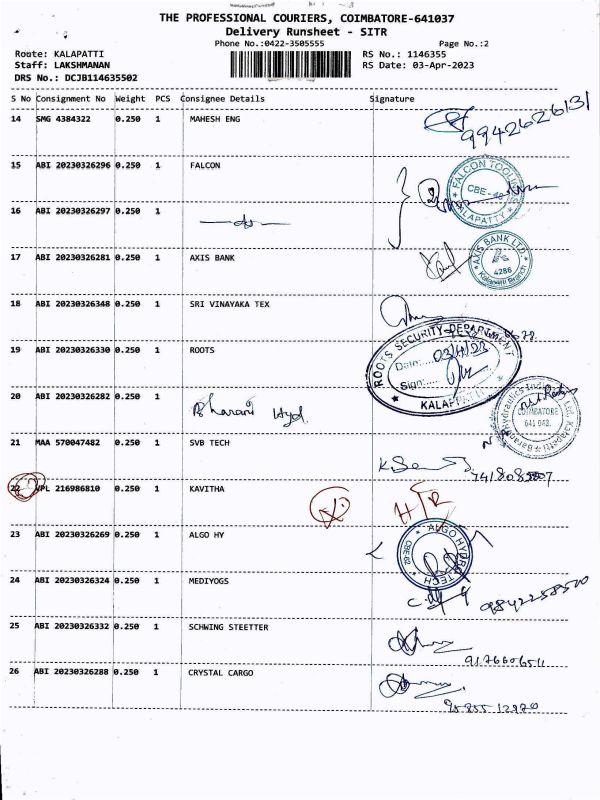 THE PROFESSIONAL COURIERS, COIMBATORE-641037
Delivery Runsheet - SITR
Phone No.:0422-3505555 Page No.:2
Route: KALAPATTI RS No.: 1146355
Staff: LAKSHMANAN RS Date: 03-Apr-2023
DRS No.: DCJB114635502
S No Consignment No Weight PCS Consignee Details Signature
14 SMG 4384322 0.250 1 MAHESH ENG
9942626131
15 ABI 20230326296 0.250 1 FALCON
FALCON TOOLINGS
KALAPATTY
16 ABI 20230326297 0.250 1
17 ABI 20230326281 0.250 1 AXIS BANK
AXIS BANK LTD.
4286
Kalapatti Branch
18 ABI 20230326348 0.250 1 SRI VINAYAKA TEX
19 ABI 20230326330 0.250 1 ROOTS
ROOTS SECURITY DEPARTMENT
Date:.... 03/4/23
Sign:....
KALAPATTI
20 ABI 20230326282 0.250 1 Bharani Hyd
COIMBATORE
21 MAA 570047482 0.250 1 SVB TECH
22 JPL 216986810 0.250 1 KAVITHA
23 ABI 20230326269 0.250 1 ALGO HY
ALGO HYDRO TECH
24 ABI 20230326324 0.250 1 MEDIYOGS
9842258520
25 ABI 20230326332 0.250 1 SCHWING STEETTER
9176606511
26 ABI 20230326288 0.250 1 CRYSTAL CARGO
9585512920